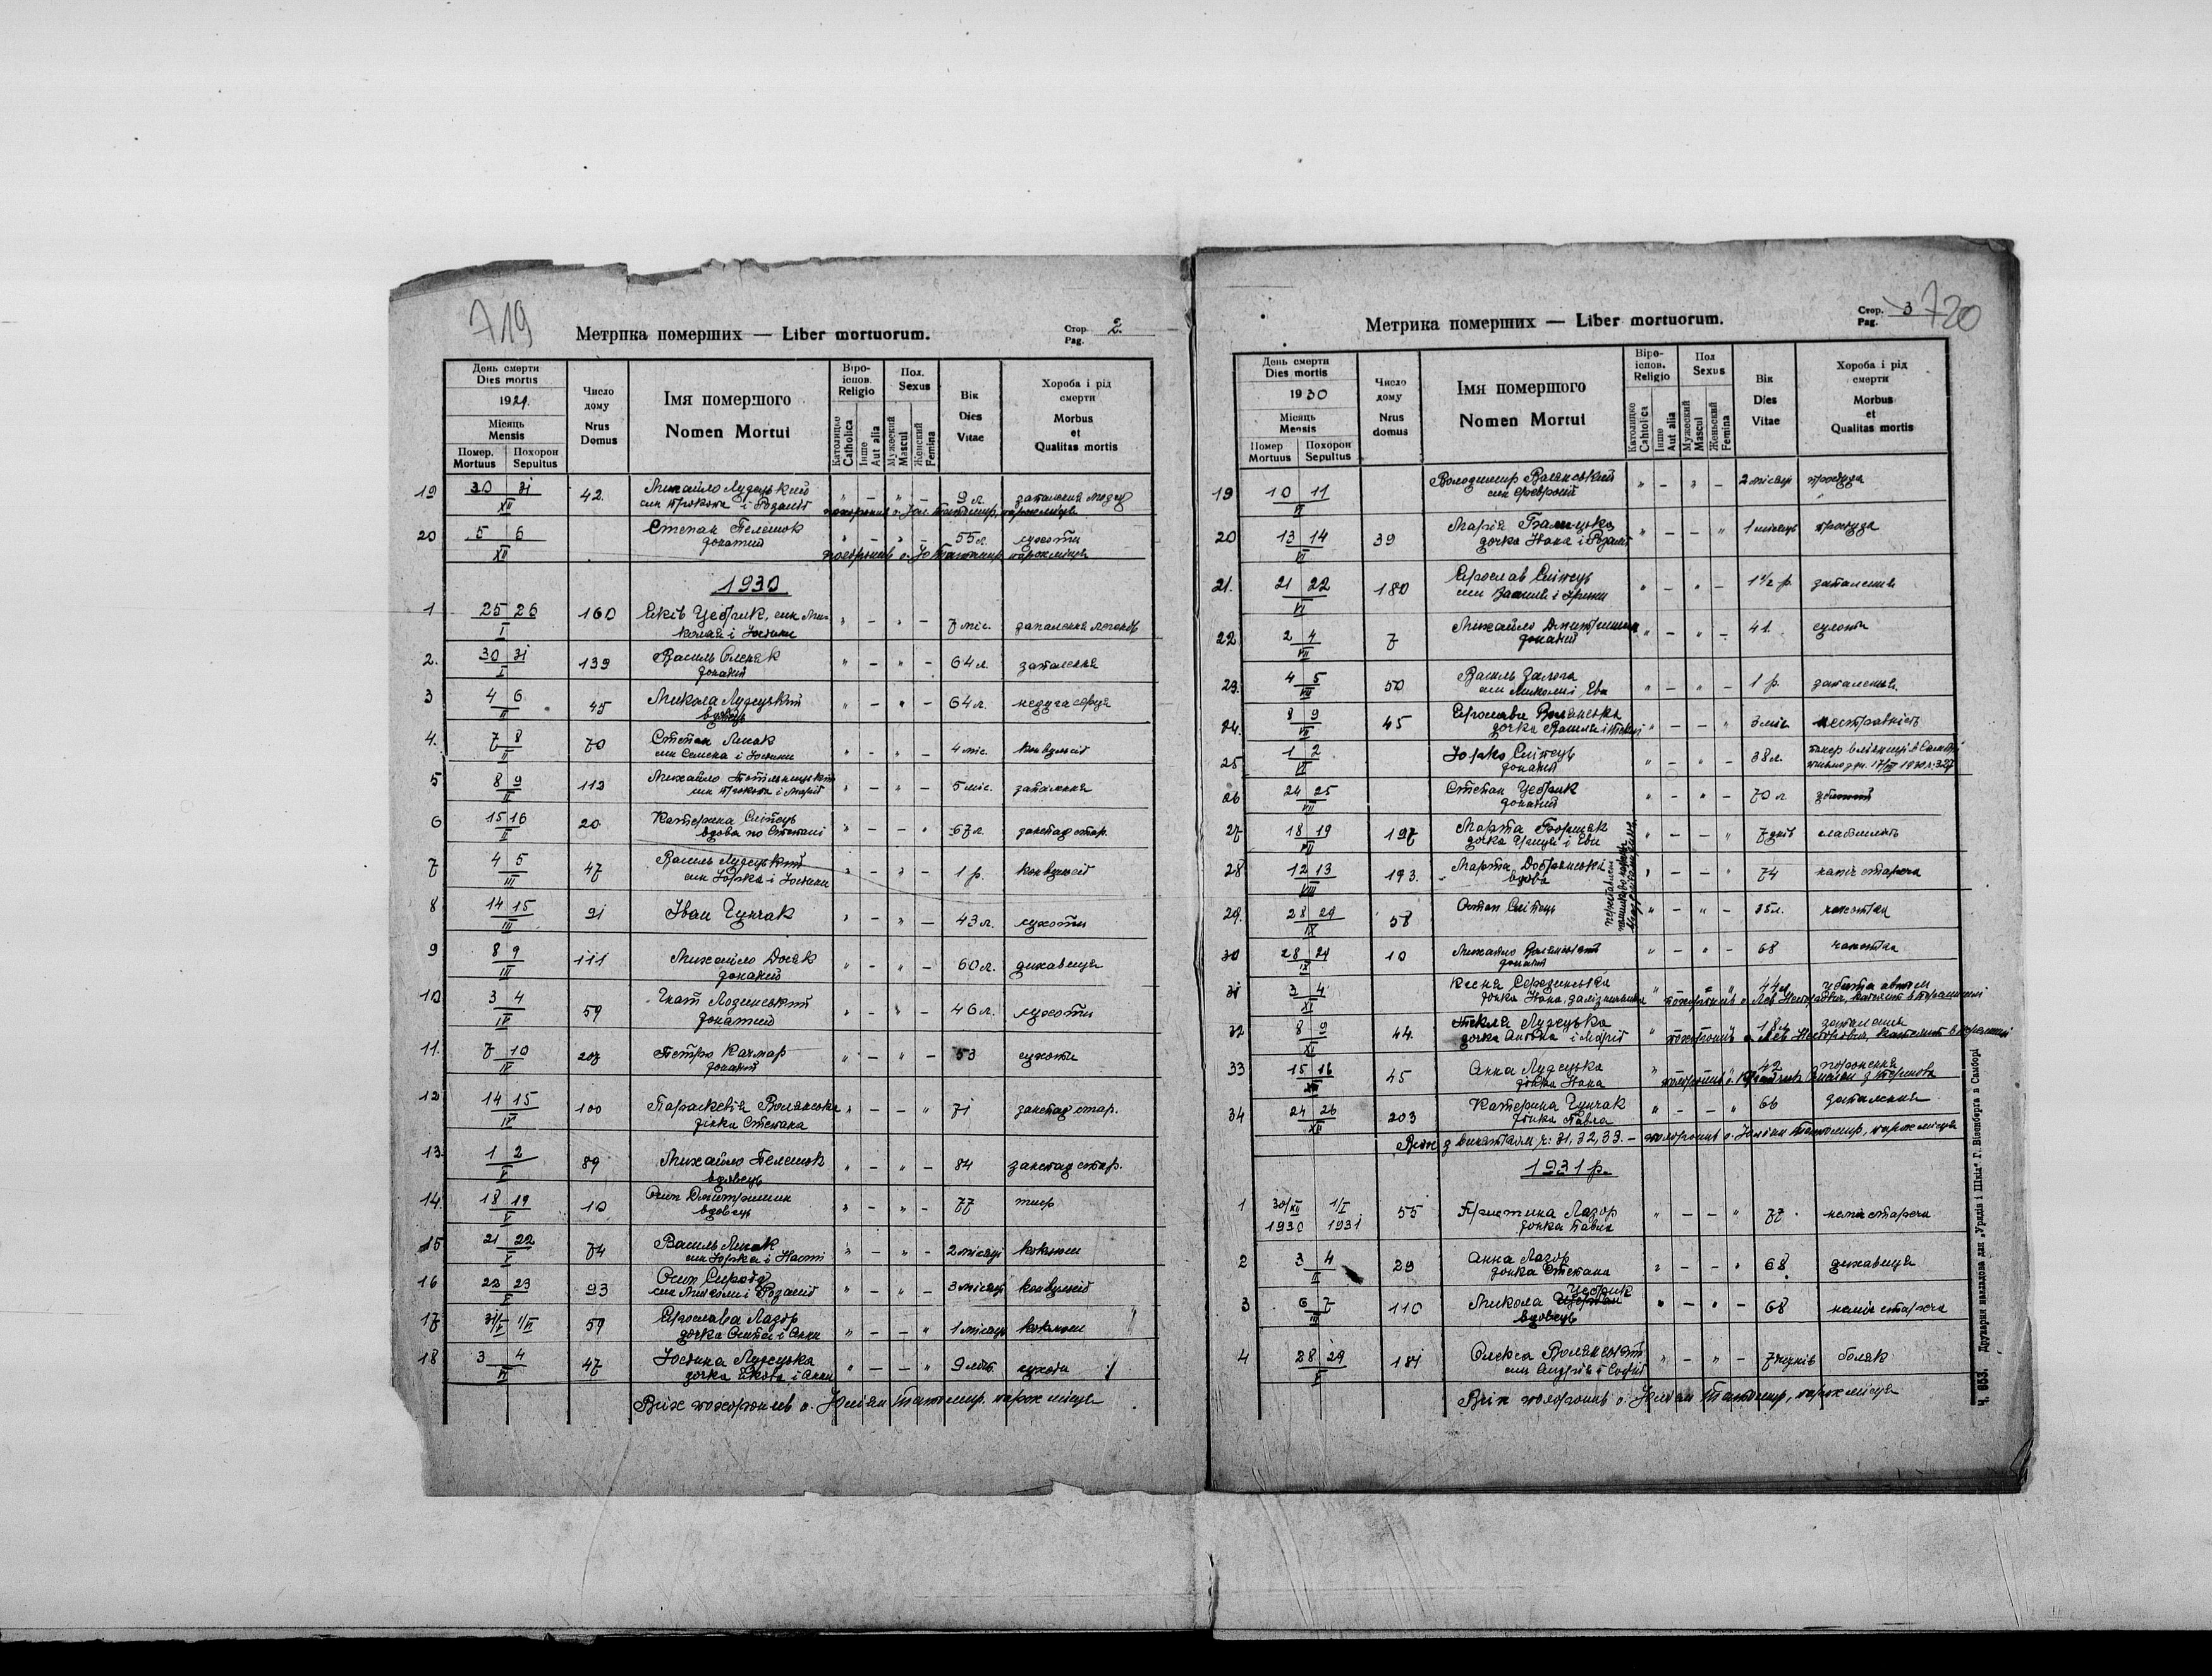 719
Метрика померших — Liber mortuorum.
Стор. Pag. 2.
День смерти Dies mortis
1929.
Місяць Mensis
Помер. Mortuus
Похорон Sepultus
Число дому Nrus Domus
Імя помершого Nomen Mortui
Віроіспов. Religio
Католицке Catholica
Інше Aut alia
Пол. Sexus
Мужеский Mascul
Женский Femina
Вік Dies Vitae
Хороба і рід смерти Morbus et Qualitas mortis
19 30 31 XII 42. Михайло Лудецький " – " – 9 л. запалення мозку
син Прокопа і Розалії
20 5 6 XII Степан Пелешок " – " – 55 л. сухоти
жонатий
1930
1 25 26 I 160 Яків Цебрик, син Ми- " – " – 7 міс. запалення легенів
колая і Юстини
2. 30 31 I 139 Василь Олексяк " – " – 64 л. запалення
жонатий
3 4 6 II 45 Микола Лудецький " – " – 64 л. недуга серця
вдовець
4. 7 8 II 70 Степан Лисак " – " – 4 міс. конвульсії
син Семена і Юстини
5 8 9 II 113 Михайло " – " – 5 міс. запалення
син Прокопа і Марії
6 15 16 II 20 Катерина Сліпець " – – " 67 л. занепад стар.
вдова по Степані
7 4 5 III 47 Василь Лудецький " – " – 1 р. конвульсії
син Юрка і Юстини
8 14 15 III 91 Іван Гунчак " – " – 43 л. сухоти
9 8 9 III 111 Михайло " – " – 60 л. дихавиця
жонатий
10 3 4 IV 59 Гнат Лозинський " – " – 46 л. сухоти
жонатий
11. 7 10 IV 207 Петро Качмар " – " – 53 сухоти
жонатий
12 14 15 IV 100 Параскевія Волянська " – – " 71 занепад стар.
жінка Степана
13. 1 2 V 89 Михайло Пелешок " – " – 84 занепад стар.
вдовець
14. 18 19 V 10 Осип Дмитришин " – " – 77 тиф
вдовець
15 21 22 V 74 Василь Лисак " – " – 2 місяці коклюш
син Юрка і Насті
16 22 23 V 93 Осип Сирота " – " – 3 місяці конвульсії
син Миколи і Розалії
17 31/V 1/VI 59 Ярослава Лазор " – – " 1 місяць коклюш
дочка Осипа і Анни
18 3 4 VI 47 Юстина Лудецька " – – " 9 літ. сухоти
дочка Якова і Анни
Всіх похоронив о. Юліян Татомир, парох місця
720
Метрика померших — Liber mortuorum.
Стор. Pag. 3
День смерти Dies mortis
1930
Місяць Mensis
Помер Mortuus
Похорон Sepultus
Число дому Nrus domus
Імя помершого Nomen Mortui
Віроіспов. Religio
Католицке Cahtolica
Інше Aut alia
Пол Sexus
Мужеский Mascul
Женьский Femina
Вік Dies Vitae
Хороба і рід смерти Morbus et Qualitas mortis
19 10 11 VI Володимир Волянський " – " – 2 місяці простуда
син Февронії
20 13 14 VI 39 Марія " – – " 1 місяць простуда
дочка Івана і Розалії
21. 21 22 VI 180 Ярослав Сліпець " – " – 1 1/2 р. запалення
син Василя і Ірини
22 2 4 VII 7 Михайло Дмитришин " – " – 41. сухоти
жонатий
23. 4 5 VII 50 Василь Залога " – " – 1 р. запалення.
син Миколи і Еви
24. 8 9 VII 45 Ярослава Волянська " – – " 3 міс. нестравність
дочка Василя і Теклі
25 1 2 VI Юрко Сліпець " – " – 38 л. помер в вязниці в Самборі
жонатий
26 24 25 VII Степан Цебрик " – " – 70 л
жонатий
27 18 19 VII 197 Марта " – – " 7 днів слабість
28 12 13 VIII 193. Марта Добрянська " – – " 74 неміч стареча
вдова
29. 28 29 IX 58 Остап Сліпець " – " – 35 л.
30 28 29 IX 10 Михайло Волянський " – " – 68
жонатий
31 3 4 XI Ксеня 44 л. убита автом
32 8 9 XI 44. Текля Лудецька 18 л. запалення
дочка Антона і Марії
33 15 16 XII 45 Анна Лудецька 42
жінка Івана
34 24 26 XII 203 Катерина Гунчак " – – " 66 запалення
жінка Павла
Всіх з виїмком ч: 31, 32, 33. – похоронив о. Юліян Татомир, парох місця
1931 р.
1 30/XII 1930 1/I 1931 55 Христина Лазор " – – " 77 неміч стареча
жінка Павла
2 3 4 II 29 Анна Лазор " – – " 68 дихавиця
жінка Степана
3 6 7 III 110 Микола Цебрик " – " – 68 неміч стареча
вдовець
4 28 29 V 181 Олекса Волянський " – " – 7 тижнів боляк
син Андрія і Софії
Всіх похоронив о. Юліян Татомир, парох місця
Ч. 653. Друкарня накладова для „Урядів і Шкіл“ Г. Візенберга в Самборі